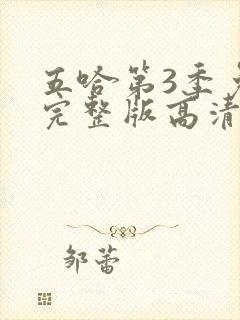 五哈第3季
完整版高清
邹蕾